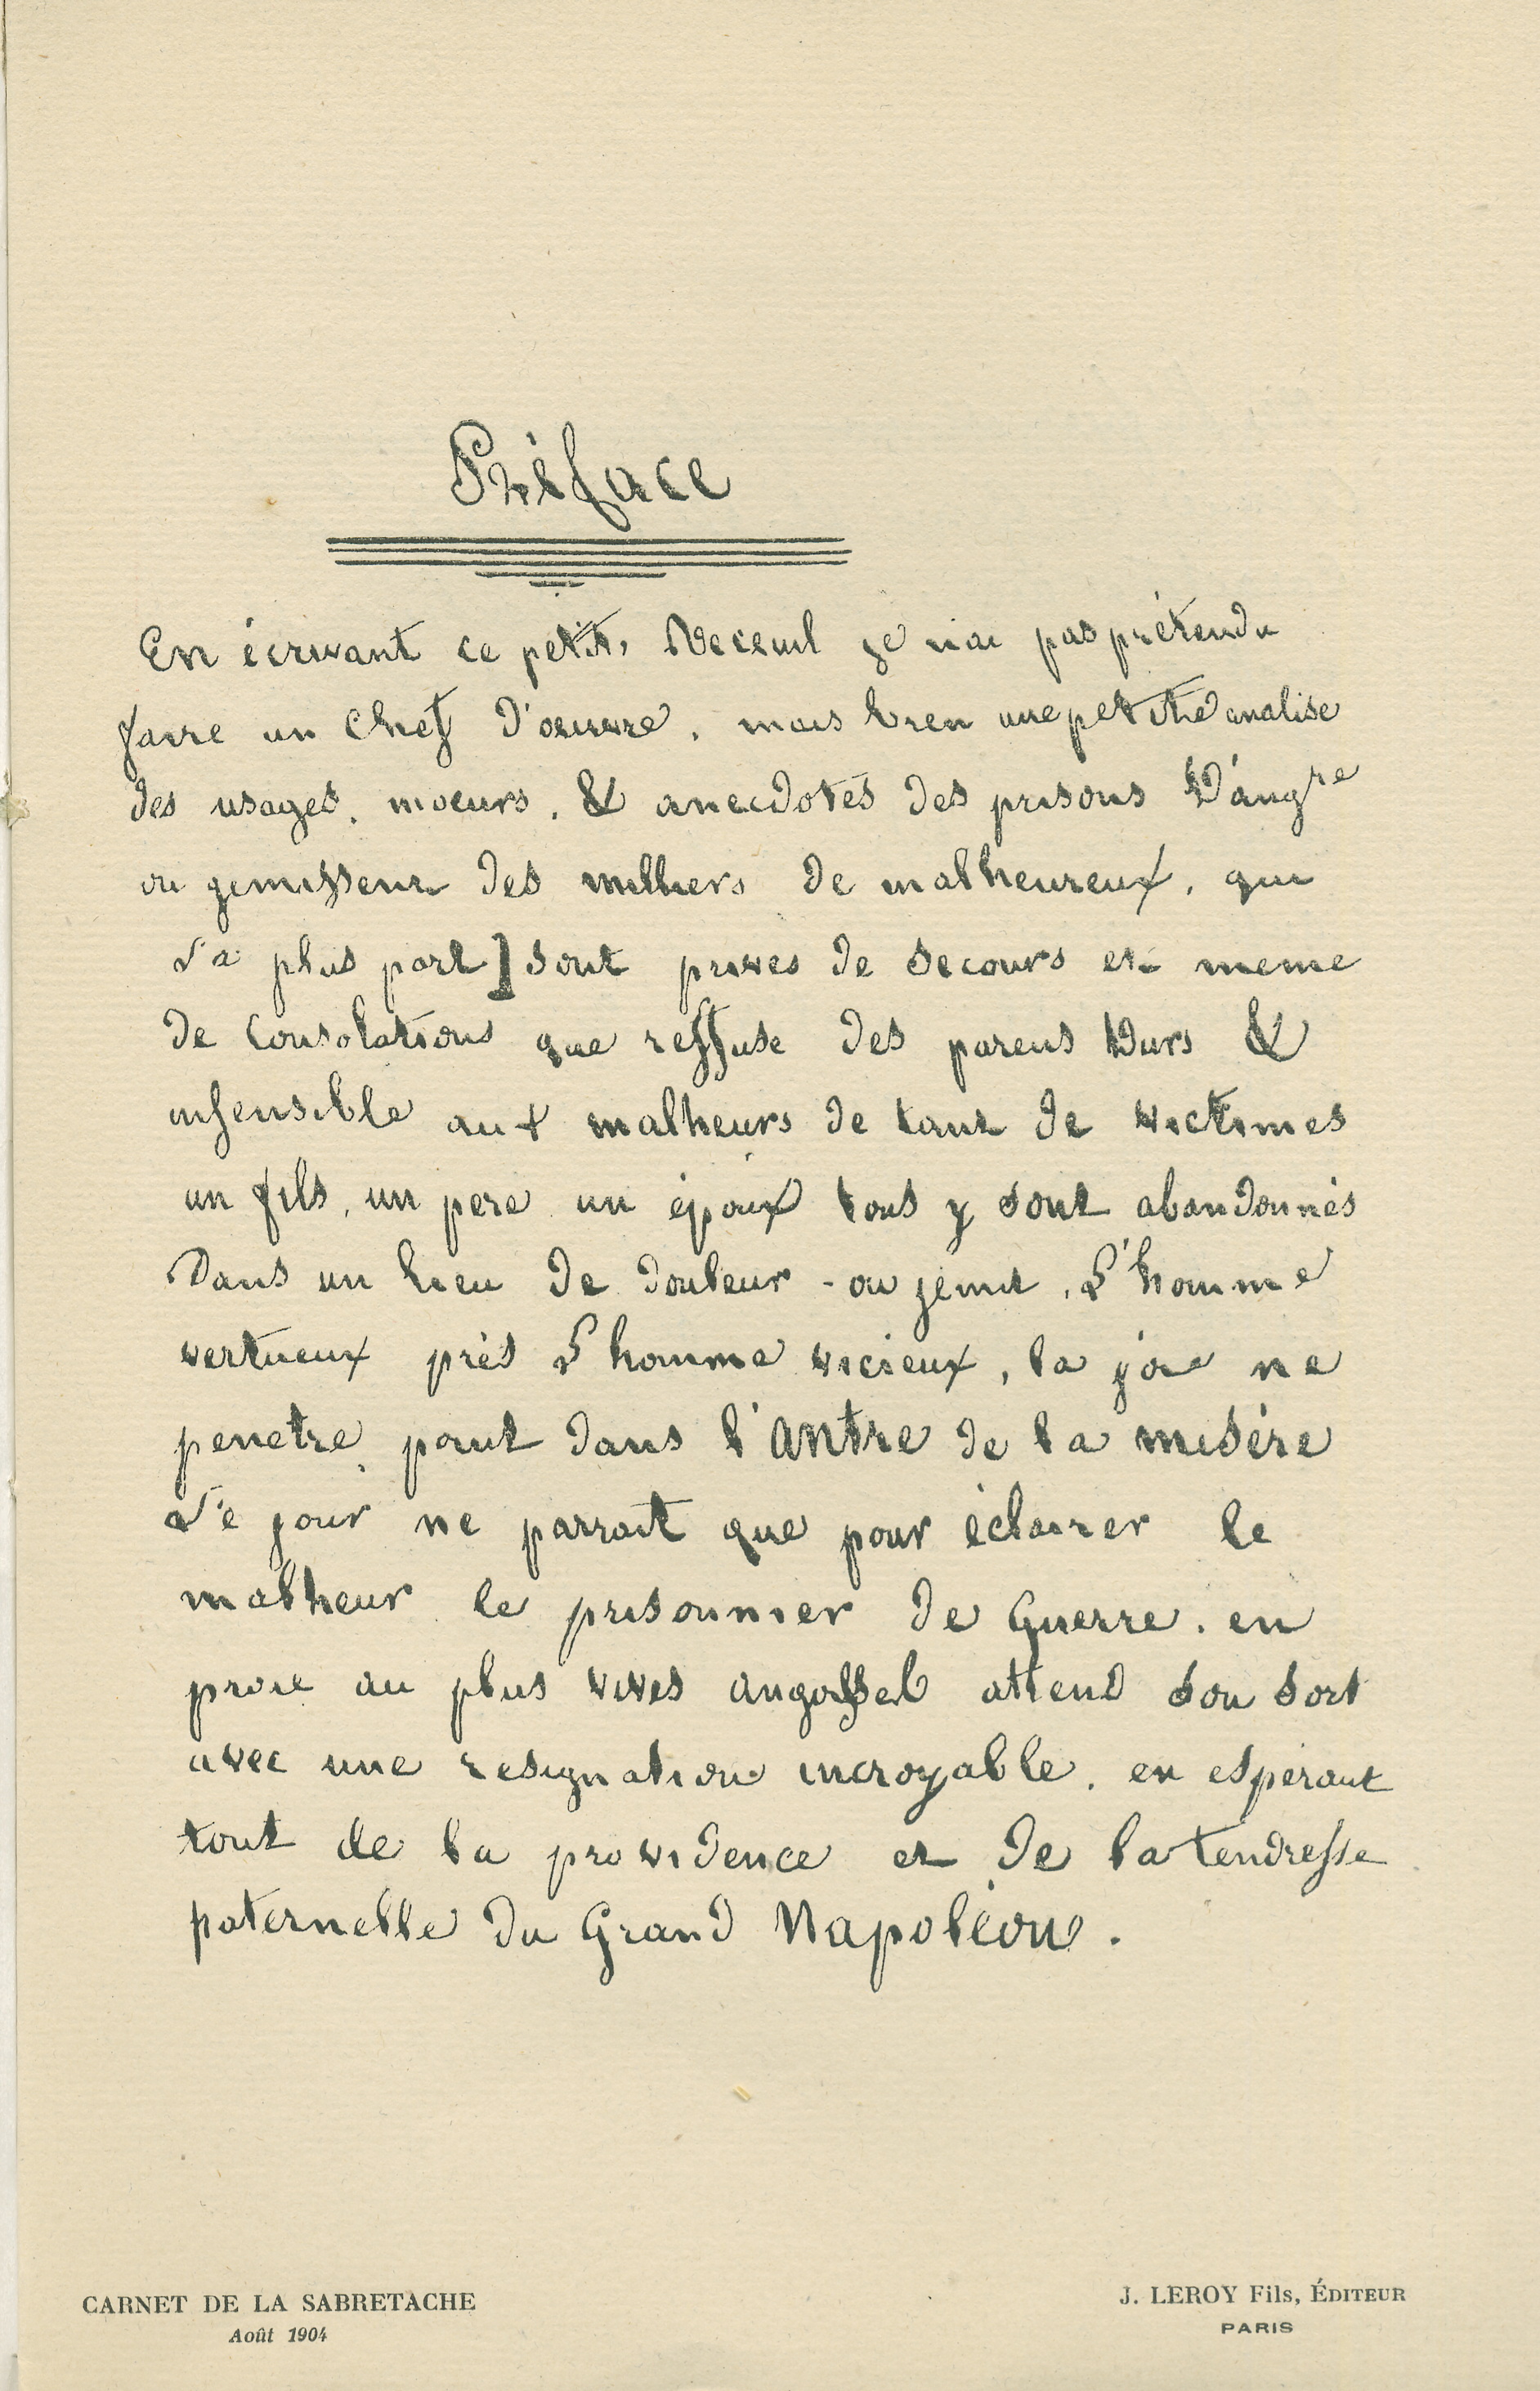 Préface
En écrivant ce petit, Receuil je nai pas prétendu
faire un Chef d'oeuvre. mais bien une petite analise
des usages, moeurs, & anecdotes des prisons D'angre
ou gemissent des milliers de malheureux, qui
La plus part] sont privés de secours et meme
de Consolations que reffuse des parens Durs &
insensible aux malheurs de tant de victimes
un fils, un pere un époux tous y sont abandonnés
Dans un lieu de douleur - ou jemit, L'homme
vertueux près L'homme vicieux, la joie ne
penetre point dans l'antre de la misère
Le jour ne parrait que pour éclairer le
malheur le prisonnier de Guerre. en
proie au plus vives angoisses attend son sort
avec une resignation incroyable. en espérant
tout de la providence et de la tendresse
paternelle du Grand Napoléon.
CARNET DE LA SABRETACHE
Août 1904
J. LEROY Fils, ÉDITEUR
PARIS